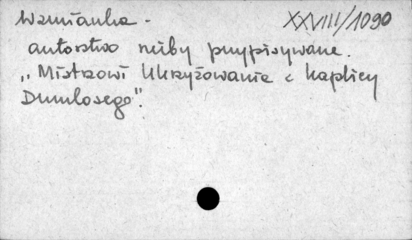 Wzmianka - XXVIII/1090
autorstwo niby przypisywane.
„Mistrzowi Ukrzyżowania z kaplicy
Dumlosego".